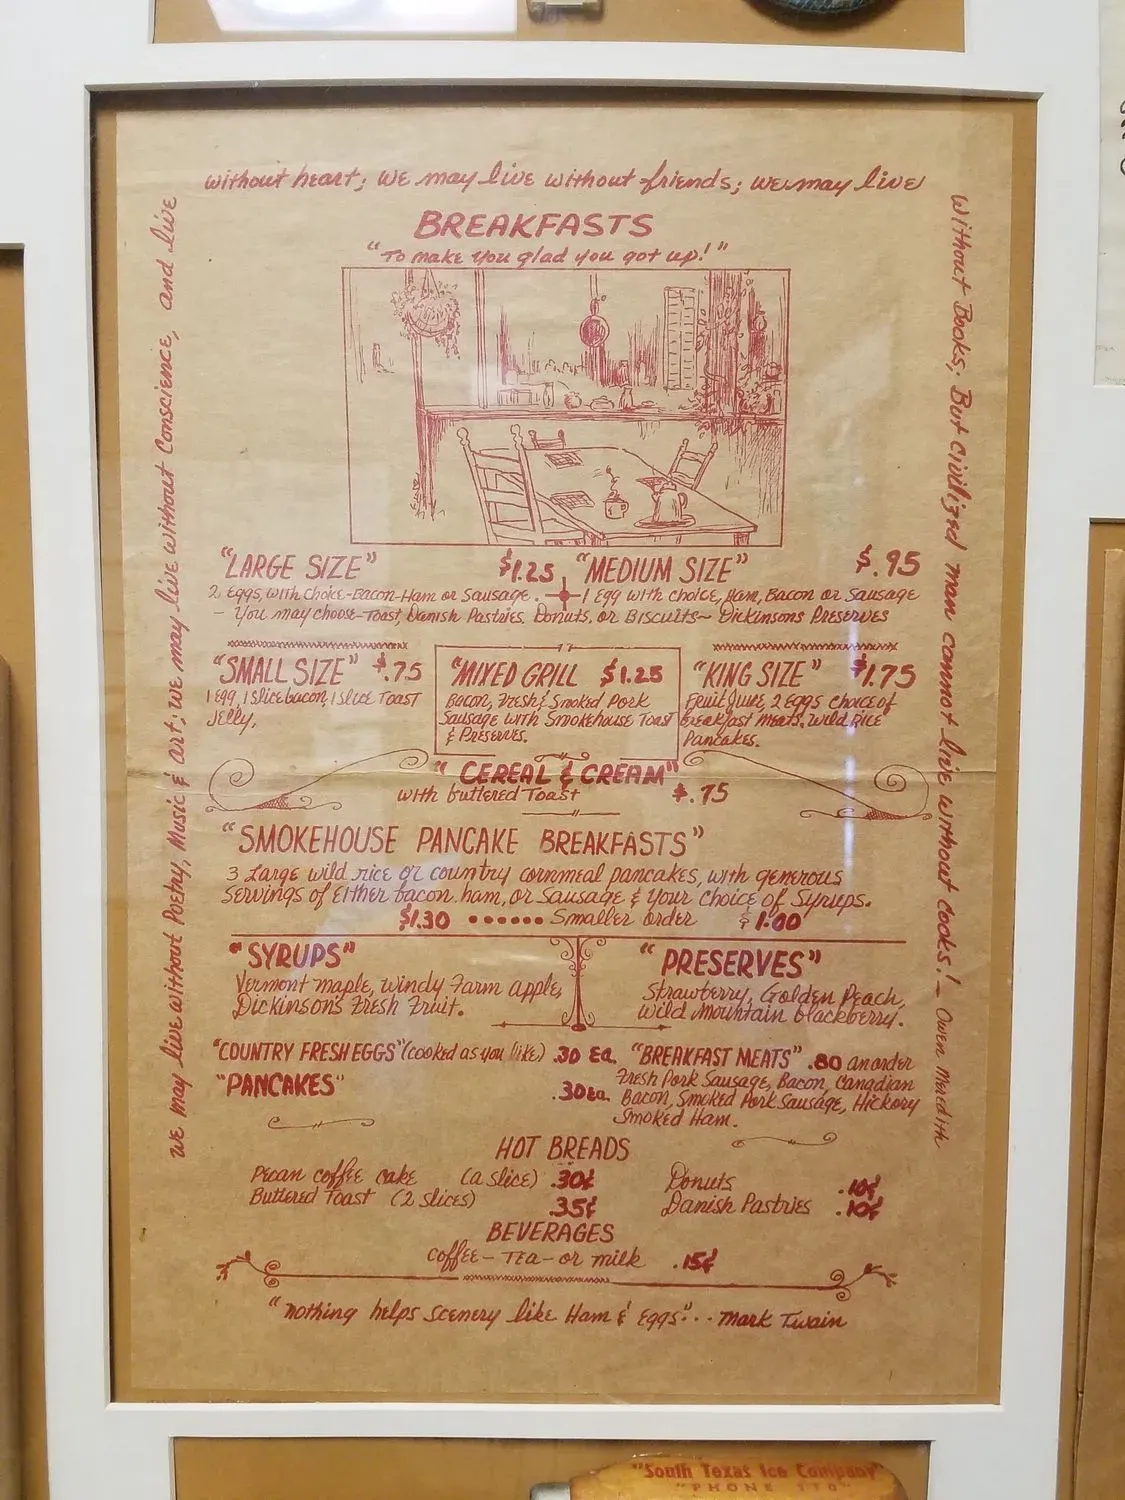 we may live without Poetry, Music & Art; we may live without Conscience, and live
without heart; we may live without friends; we may live
without Books; But civilized man cannot live without cooks! — Owen Meredith
BREAKFASTS
"To make you glad you got up!"
"LARGE SIZE" $1.25
2 Eggs, with choice-Bacon-Ham or Sausage.
"MEDIUM SIZE" $.95
1 Egg with choice, Ham, Bacon or Sausage
- You may choose-Toast, Danish Pastries, Donuts, or Biscuits~ Dickinsons Preserves
"SMALL SIZE" $.75
1 Egg, 1 Slice bacon, 1 Slice Toast
Jelly.
"MIXED GRILL $1.25
Bacon, Fresh & Smoked Pork
Sausage with Smokehouse Toast
& Preserves.
"KING SIZE" $1.75
Fruit Juice, 2 Eggs choice of
breakfast meats, Wild Rice
Pancakes.
"CEREAL & CREAM"
with buttered Toast $.75
"SMOKEHOUSE PANCAKE BREAKFASTS"
3 Large wild rice or country cornmeal pancakes, with generous
servings of Either bacon, ham, or Sausage & Your Choice of Syrups.
$1.30 •••••• Smaller order $1.00
"SYRUPS"
Vermont maple, windy Farm apple,
Dickinson's Fresh Fruit.
"PRESERVES"
Strawberry, Golden Peach,
Wild Mountain blackberry.
"COUNTRY FRESH EGGS" (cooked as you like) .30 Ea.
"PANCAKES" .30 Ea.
"BREAKFAST MEATS" .80 an order
Fresh Pork Sausage, Bacon, Canadian
Bacon, Smoked Pork Sausage, Hickory
Smoked Ham.
HOT BREADS
Pecan coffee cake (a slice) .30¢
Buttered Toast (2 slices) .35¢
Donuts .10¢
Danish Pastries .10¢
BEVERAGES
coffee - Tea - or milk .15¢
"nothing helps scenery like Ham & Eggs"... Mark Twain
"South Texas Ice Company"
"PHONE 110"